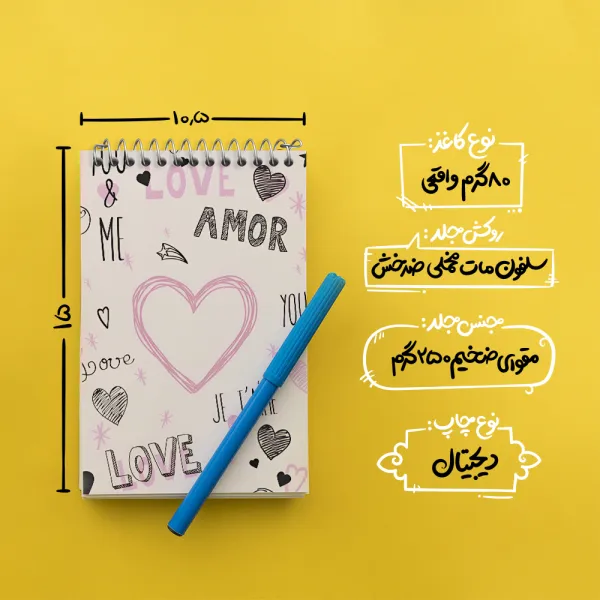 ۱۰٫۵
۱۵
YOU
&
ME
LOVE
AMOR
YOU
Love
JE T'AIME
LOVE
نوع کاغذ:
۸۰گرم واقعی
روکش جلد:
سلفون مات مخملی ضدخش
جنس جلد:
مقوای ضخیم ۲۵۰گرم
نوع چاپ:
دیجیتال